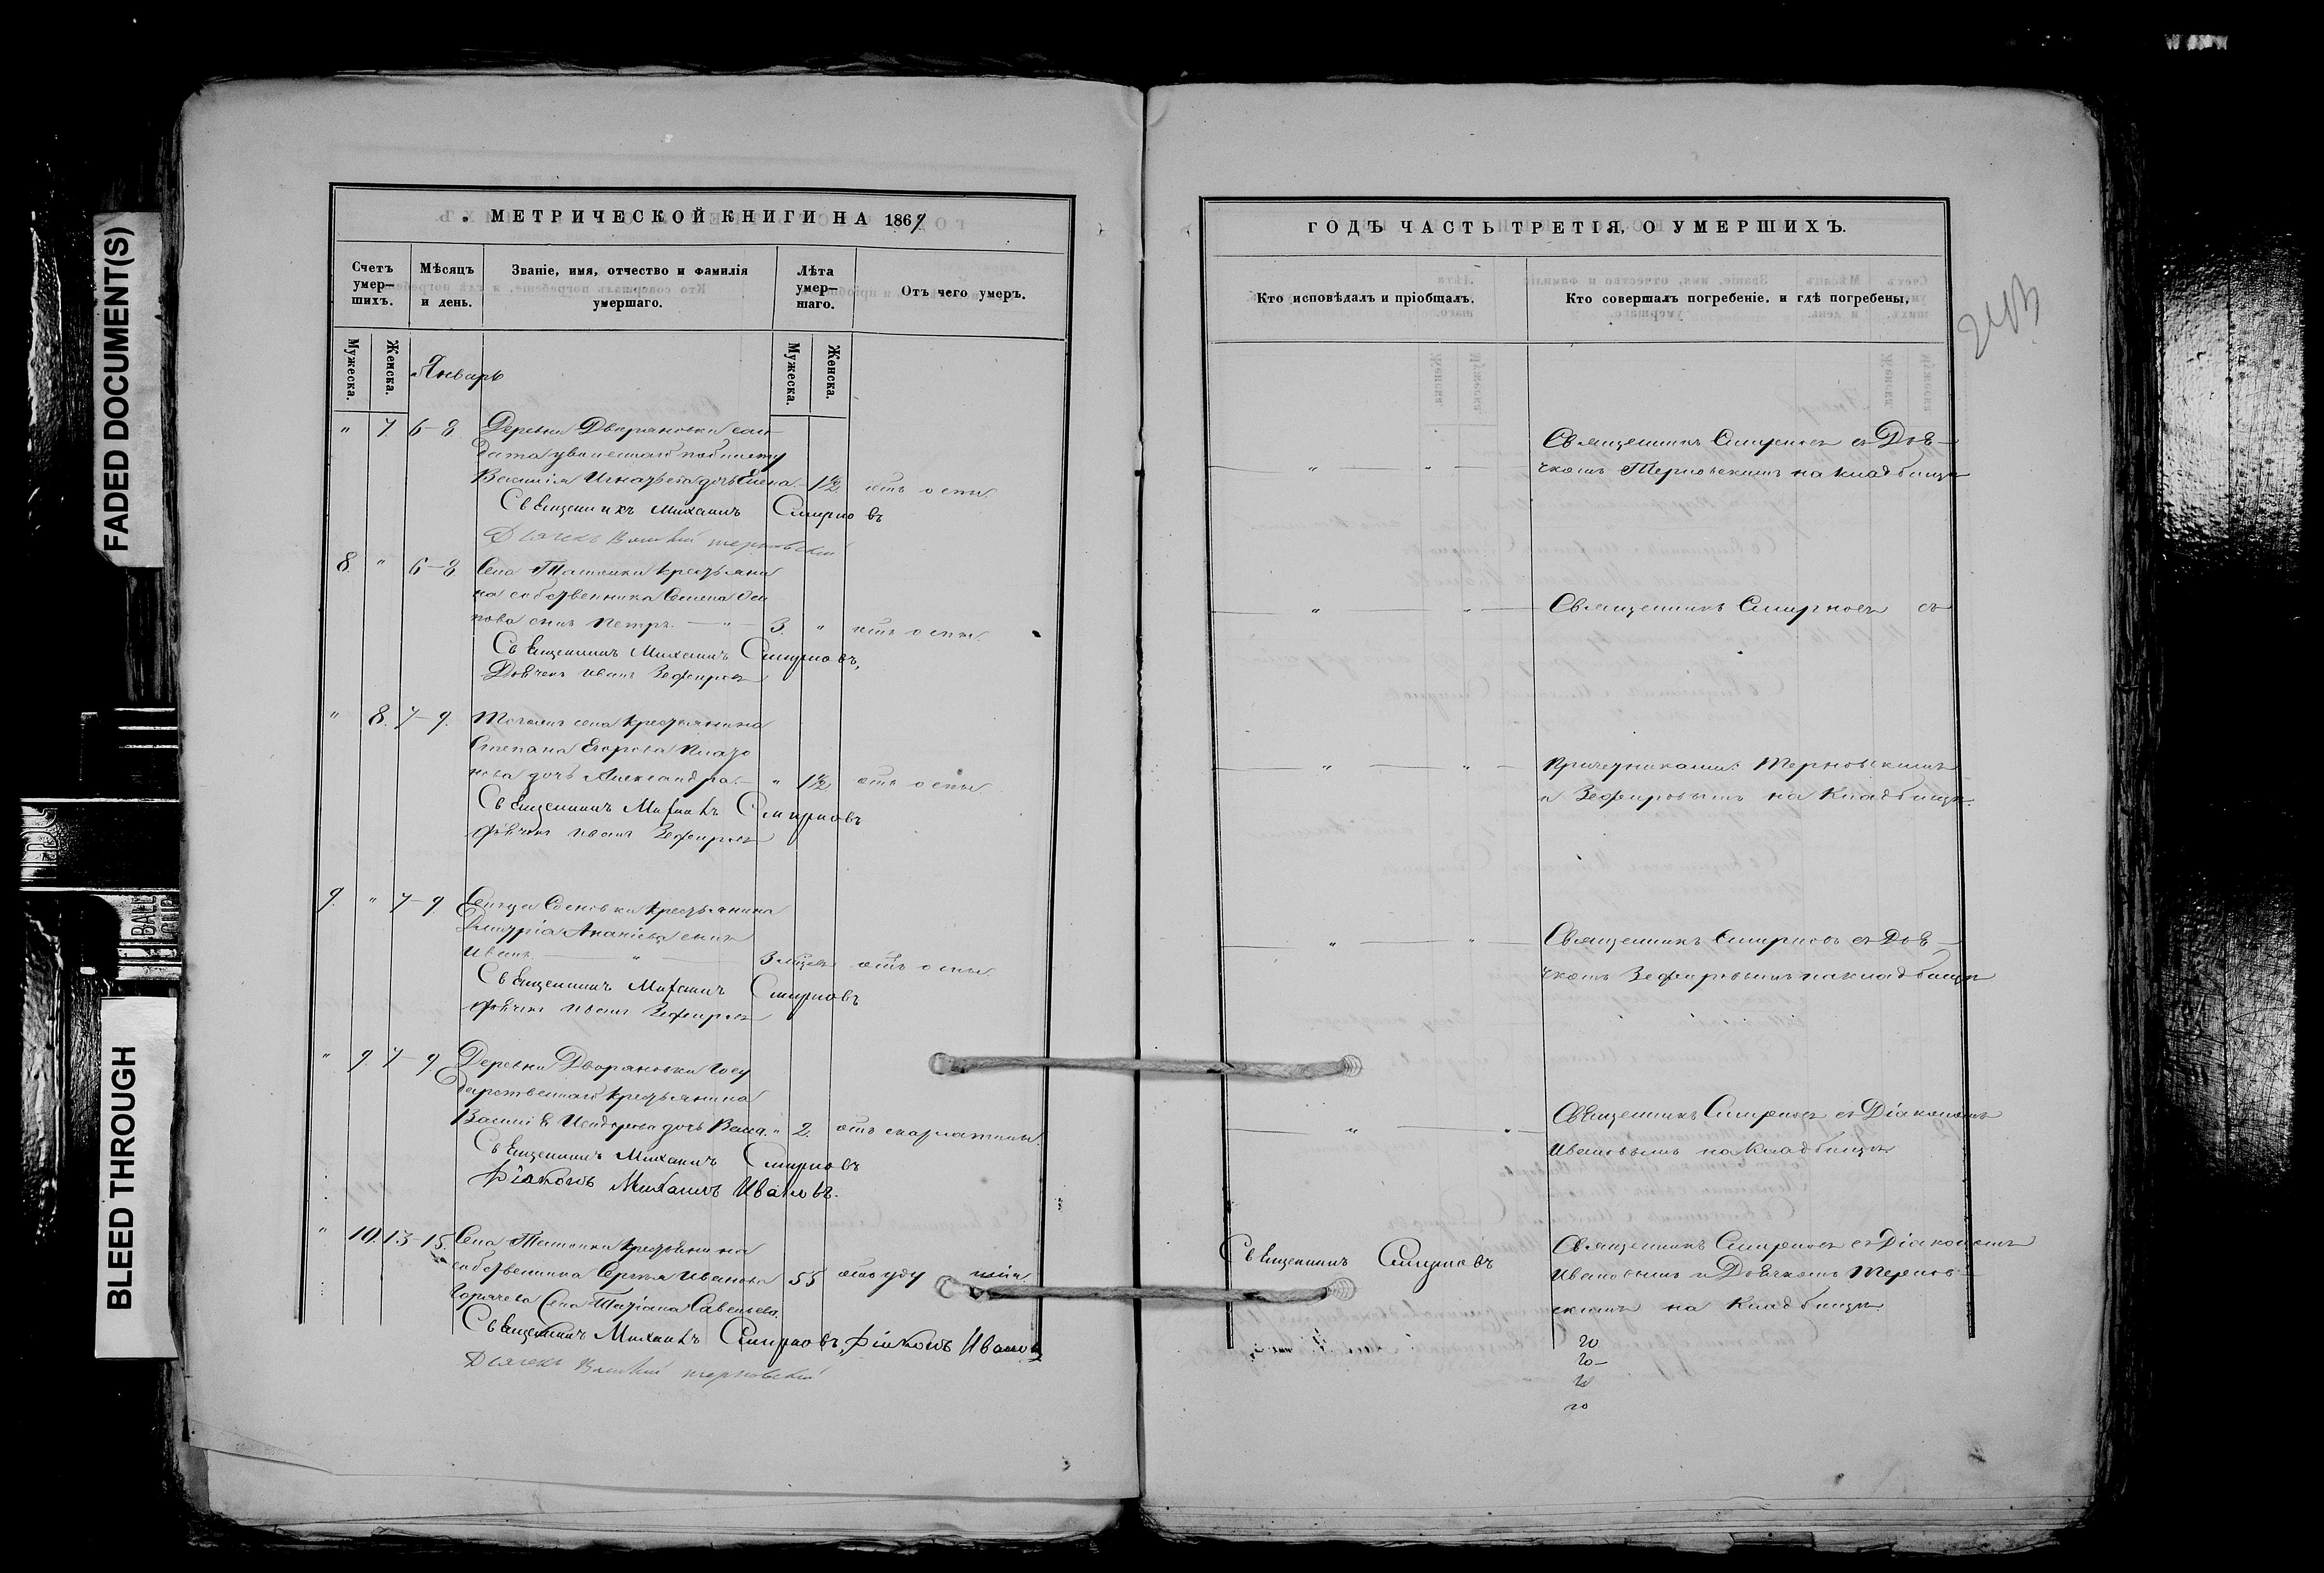 FADED DOCUMENT(S)
BLEED THROUGH
МЕТРИЧЕСКОЙ КНИГИ НА 1867
Счетъ умер-
шихъ.
Мѣсяцъ
и день.
Званіе, имя, отчество и фамилія
умершаго.
Лѣта
умер-
шаго.
Отъ чего умеръ.
Мужеска.
Женска.
Январь
Мужеска.
Женска.
" 7. 6-8 Деревни Дворяновки сол-
дата
Василія Игнатьева дочь Елена - 1 1/2 отъ оспы.
Священникъ Михаилъ Смирновъ
Дьячекъ Василій Терновскій
8. " 6-8 Села Татанки крестьяни
на собственника Семена Оси
пова сынъ Петръ. - " - 3. " отъ оспы.
Священникъ Михаилъ Смирновъ,
Дьячекъ Иванъ Зефировъ
" 8. 7-9. Тогожъ села крестьянина
Степана Егорова
нова дочь Александра. - " 1 1/2 отъ оспы
Священникъ Михаилъ Смирновъ
Дьячекъ Иванъ Зефировъ
9. " 7-9 Сельца Сосновки крестьянина
Димитрія Ананіева сынъ
Иванъ. - " - 3 отъ оспы
Священникъ Михаилъ Смирновъ
Дьячекъ Иванъ Зефировъ
" 9. 7-9 Деревни Дворяновки Госу
дарственнаго крестьянина
Василія Исидорова дочь " 2. отъ скарлатины.
Священникъ Михаилъ Смирновъ
Діаконъ Михаилъ Ивановъ.
" 10. 13-15. Села Татанки крестьянина
собственника Сергея Иванова 55 отъ удушія.
Горячева Татіана Савельева.
Священникъ Михаилъ Смирновъ, Діаконъ Ивановъ
Дьячекъ Василій Терновскій
ГОДЪ ЧАСТЬ ТРЕТІЯ, О УМЕРШИХЪ.
Кто исповѣдалъ и пріобщалъ.
Кто совершалъ погребеніе, и гдѣ погребены,
Священникъ Смирновъ съ Дья-
чкомъ Терновскимъ на кладбищѣ
Священникъ Смирновъ съ
Причетниками: Терновскимъ
и Зефировымъ на кладбищѣ.
Священникъ Смирновъ съ Дья-
чкомъ Зефировымъ на кладбищѣ
Священникъ Смирновъ съ Діакономъ
Ивановымъ на кладбищѣ
Священникъ Смирновъ
Священникъ Смирновъ съ Діакономъ
Ивановымъ и Дьячкомъ Тернов-
скимъ на кладбищѣ